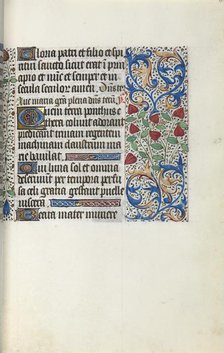 Gloria patri et filio et spi
ritui sancto sicut erat in prin
cipio et nūc et semper et in
secula seculorum amen.
Aue maria grā plena dūs tecū.
Quem terra ponthus e
thera colunt adorant
predicant trinam regentem
machinam claustrum ma
rie baiulat
Cui luna sol et omnia
deseruiunt per tempora perfu
sa celi gratia gestant puelle
viscera
Beata mater munere